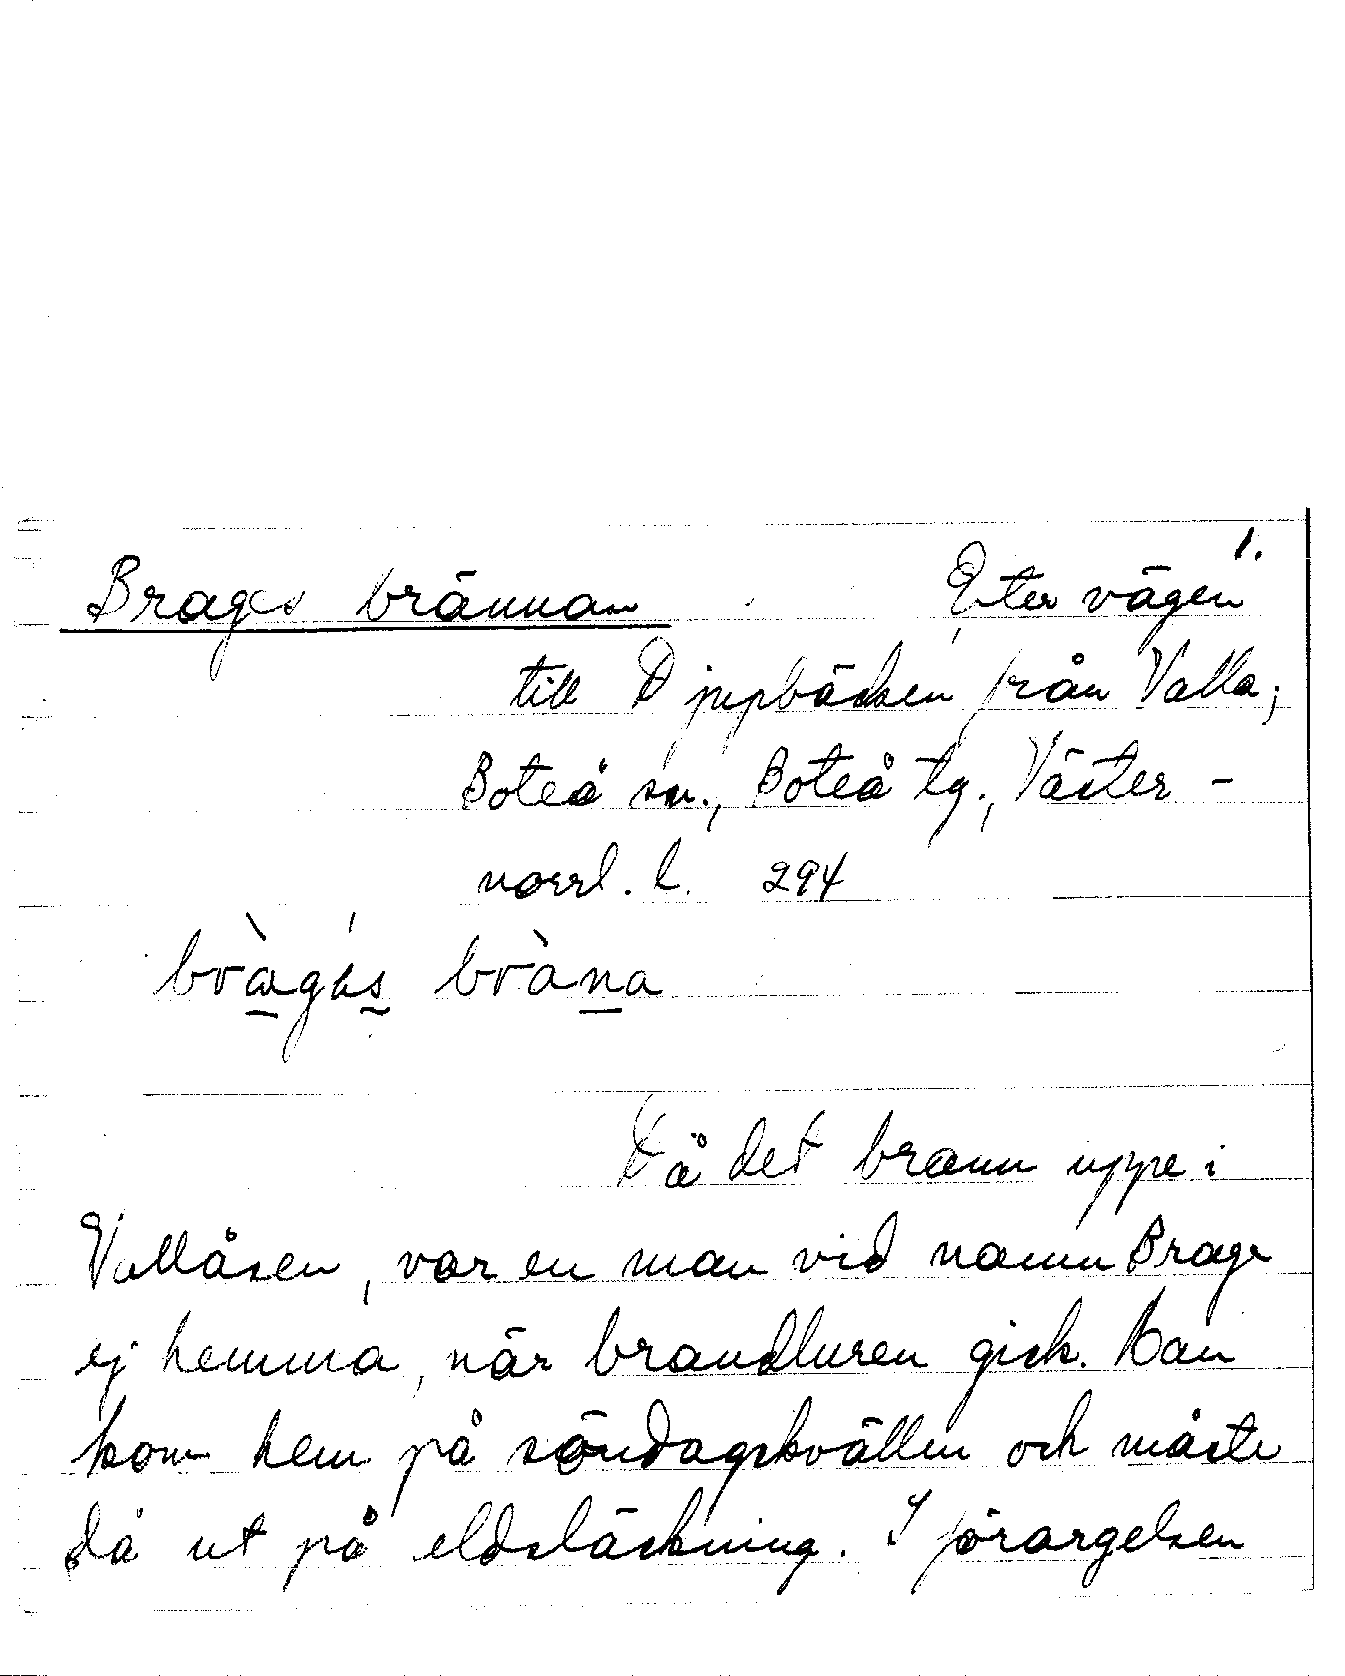 1.
Brages brännan Efter vägen
till Djupbäcken från Valla,
Boteå sn., Boteå tg., Väster-
norrl. l. 294
bràgės bràna
Då det brann uppe i
Vallåsen, var en man vid namn Brage
ej hemma, när brandluren gick. Han
kom hem på söndagskvällen och måste
då ut på eldsläckning. I förargelsen